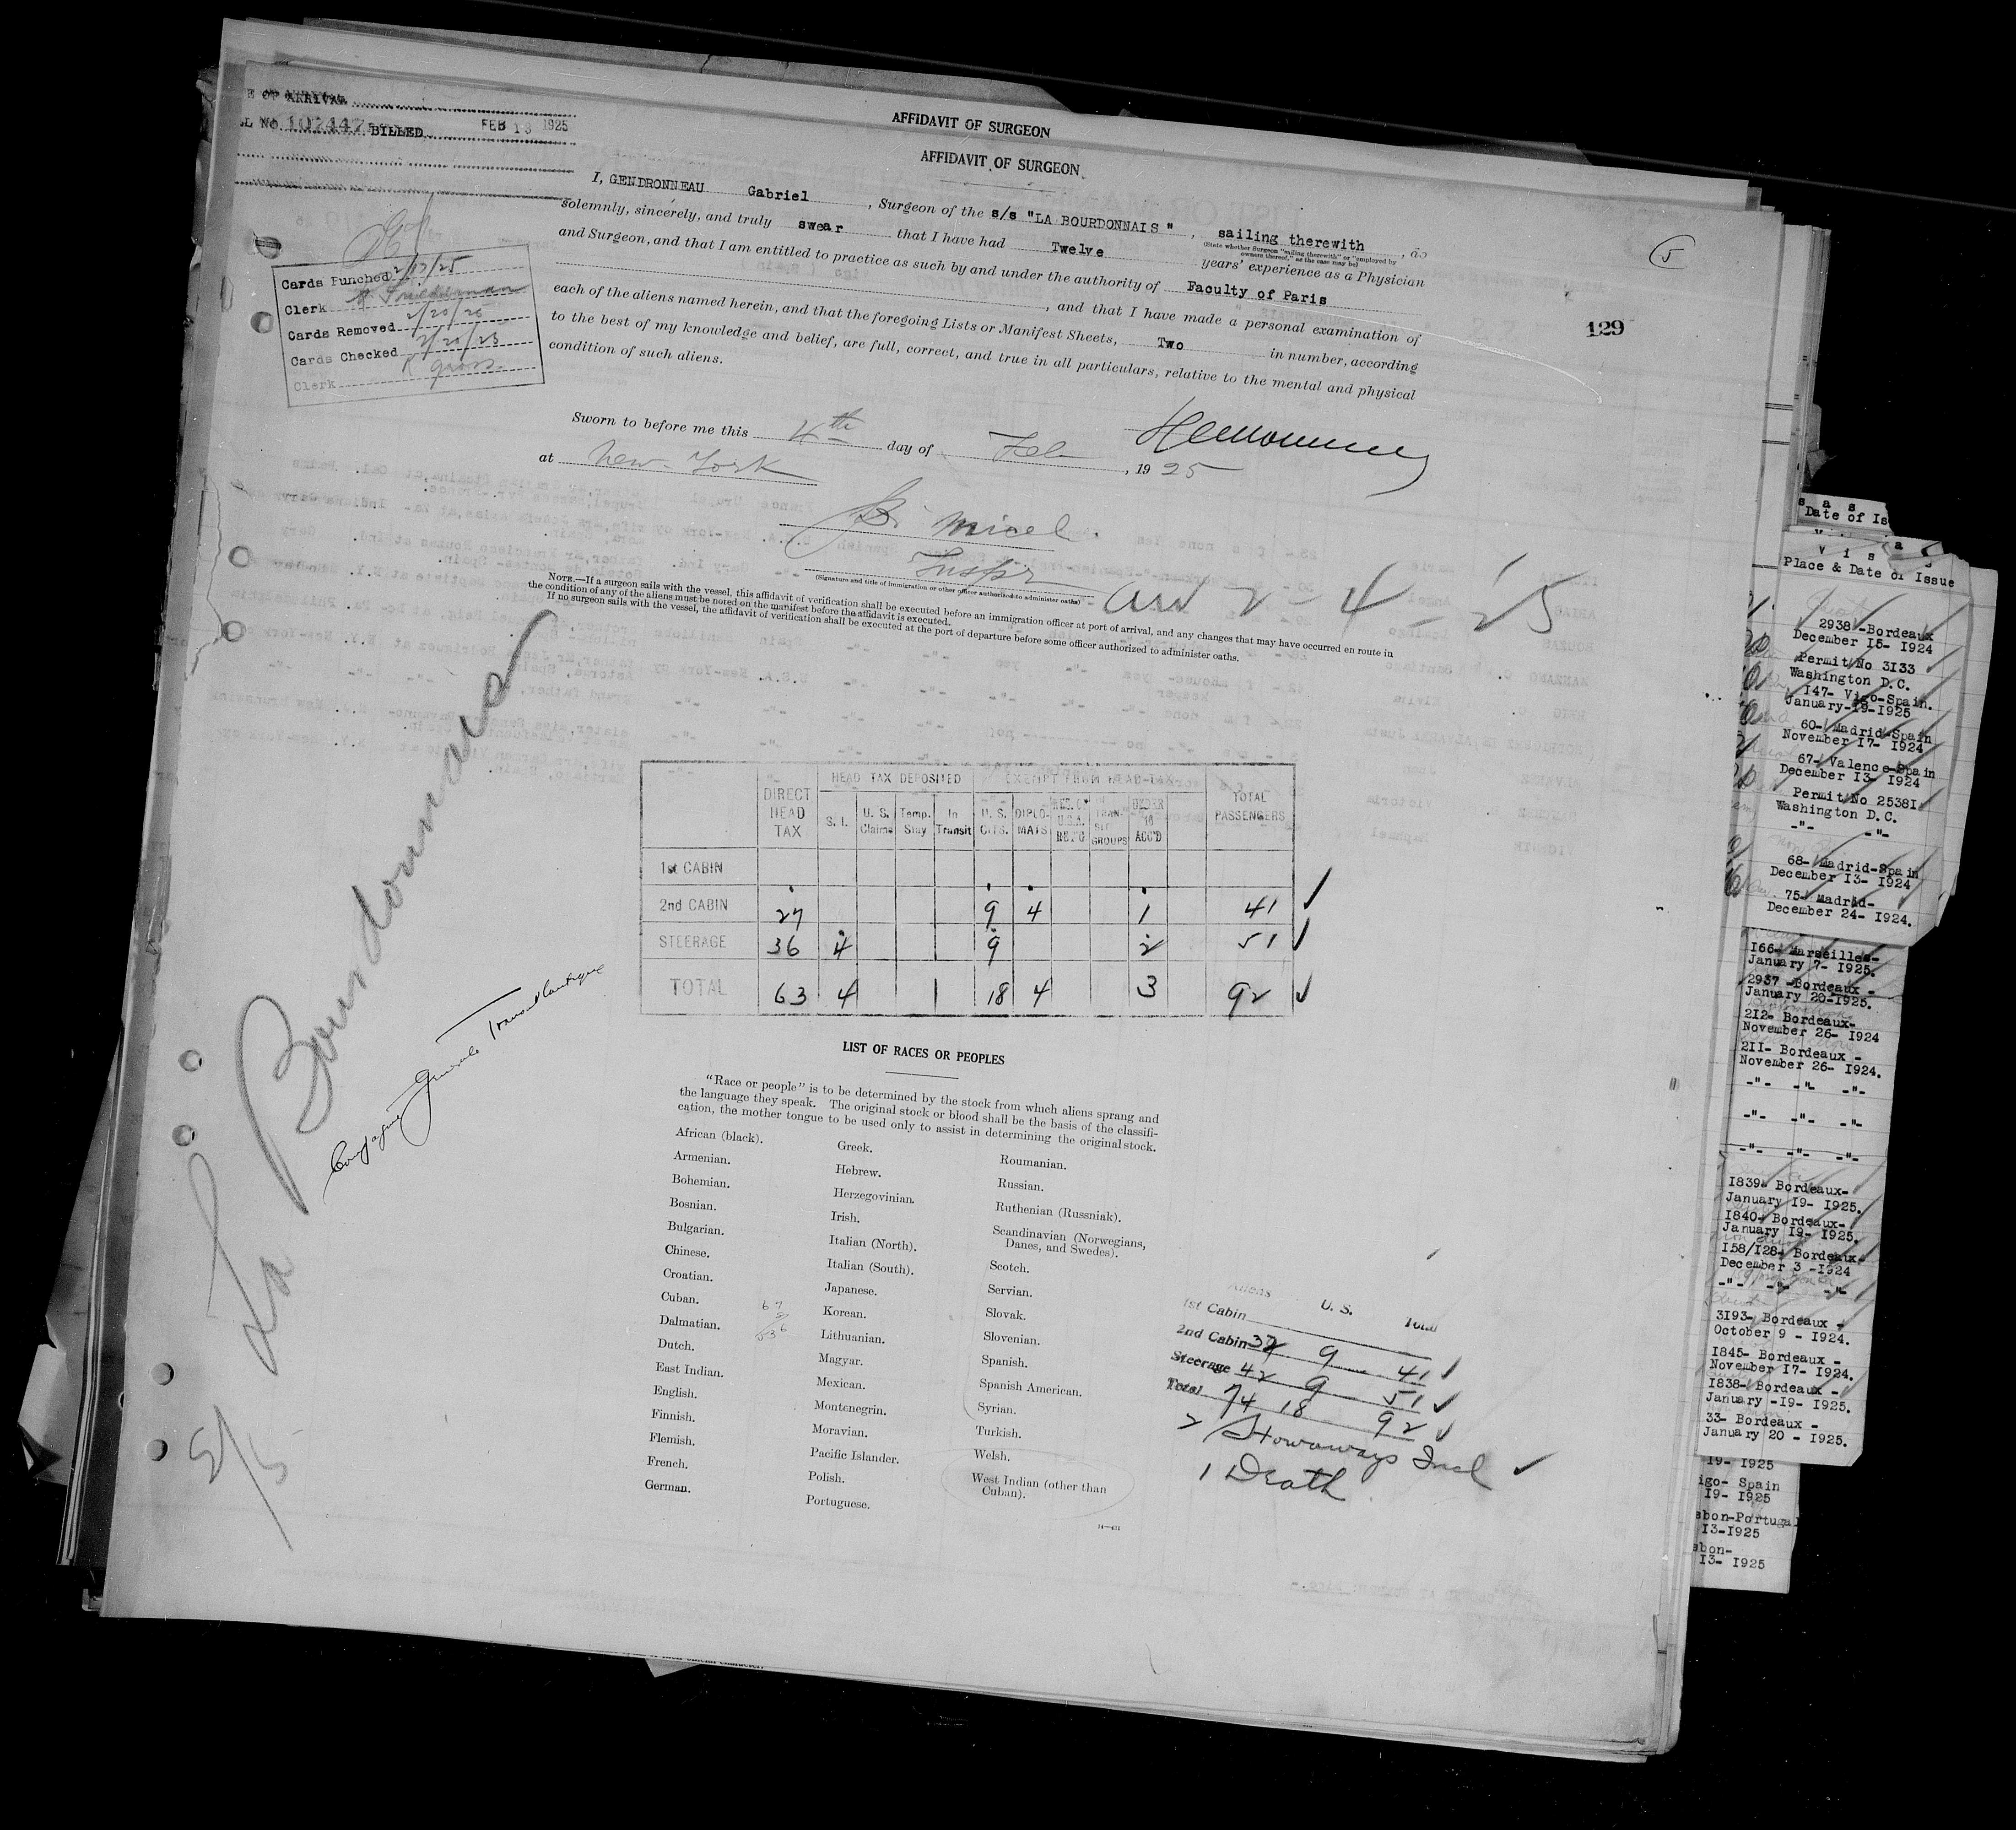 E OF ARRIVAL
L No. 107447 BILLED FEB 13 1925
AFFIDAVIT OF SURGEON
AFFIDAVIT OF SURGEON
I, GENDRONNEAU Gabriel , Surgeon of the s/s "LA BOURDONNAIS" , sailing therewith , do
(State whether Surgeon "sailing therewith" or "employed by owners thereof," as the case may be)
solemnly, sincerely, and truly swear that I have had Twelve years' experience as a Physician
and Surgeon, and that I am entitled to practice as such by and under the authority of Faculty of Paris
, and that I have made a personal examination of
each of the aliens named herein, and that the foregoing Lists or Manifest Sheets, Two in number, according
to the best of my knowledge and belief, are full, correct, and true in all particulars, relative to the mental and physical
condition of such aliens.
5
129
Cards Punched 2/17/25
Clerk
Cards Removed
Cards Checked
Clerk
Sworn to before me this 4th day of Feb , 1925
at New-York
Inspr
(Signature and title of immigration or other officer authorized to administer oaths)
arr 2-4-'25
NOTE.—If a surgeon sails with the vessel, this affidavit of verification shall be executed before an immigration officer at port of arrival, and any changes that may have occurred en route in
the condition of any of the aliens must be noted on the manifest before the affidavit is executed.
If no surgeon sails with the vessel, the affidavit of verification shall be executed at the port of departure before some officer authorized to administer oaths.
La Bourdonnais
Compagnie Generale Transatlantique
2/5
HEAD TAX DEPOSITED EXEMPT FROM HEAD TAX
DIRECT HEAD TAX S. I. U. S. Claims Temp. Stay In Transit U. S. CITS. DIPLOMATS U.S.A. TRANSIT GROUPS UNDER 16 ACC'D TOTAL PASSENGERS
1st CABIN
2nd CABIN 27 9 4 1 41 ✓
STEERAGE 36 4 9 2 51 ✓
TOTAL 63 4 18 4 3 92 ✓
LIST OF RACES OR PEOPLES
"Race or people" is to be determined by the stock from which aliens sprang and
the language they speak. The original stock or blood shall be the basis of the classifi-
cation, the mother tongue to be used only to assist in determining the original stock.
African (black).
Armenian.
Bohemian.
Bosnian.
Bulgarian.
Chinese.
Croatian.
Cuban.
Dalmatian.
Dutch.
East Indian.
English.
Finnish.
Flemish.
French.
German.
Greek.
Hebrew.
Herzegovinian.
Irish.
Italian (North).
Italian (South).
Japanese.
Korean.
Lithuanian.
Magyar.
Mexican.
Montenegrin.
Moravian.
Pacific Islander.
Polish.
Portuguese.
Roumanian.
Russian.
Ruthenian (Russniak).
Scandinavian (Norwegians,
Danes, and Swedes).
Scotch.
Servian.
Slovak.
Slovenian.
Spanish.
Spanish American.
Syrian.
Turkish.
Welsh.
West Indian (other than
Cuban).
Aliens U. S. Total
1st Cabin
2nd Cabin 32 9 41 ✓
Steerage 42 9 51 ✓
Total 74 18 92 ✓
2 Stowaways Incl ✓
1 Death
s a s
Date of Is
V i s a
Place & Date of Issue
2938-Bordeaux
December 15- 1924
Permit No 3133
Washington D.C.
147- Vigo-Spain.
January-19-1925
60- Madrid-Spain
November 17- 1924
67- Valence-Spain
December 13- 1924
Permit No 25381
Washington D.C.
-"- -"-
68- Madrid-Spain
December 13- 1924
75- Madrid-
December 24- 1924.
166- Marseilles-
January 7- 1925.
2937 -Bordeaux -
January 20-1925.
212- Bordeaux-
November 26- 1924
211- Bordeaux -
November 26- 1924.
-"- -"- -"-
-"- -"- -"-
-"- -"- -"-
1839- Bordeaux-
January 19- 1925.
1840- Bordeaux-
January 19- 1925.
158/128- Bordeaux-
December 3 -1924
-"- -"- -"-
3193- Bordeaux -
October 9 - 1924.
1845- Bordeaux -
November 17- 1924.
1838- Bordeaux -
January -19- 1925.
33- Bordeaux -
January 20 - 1925.
19- 1925
igo- Spain
19- 1925
sbon-Portugal
13-1925
sbon-
13- 1925